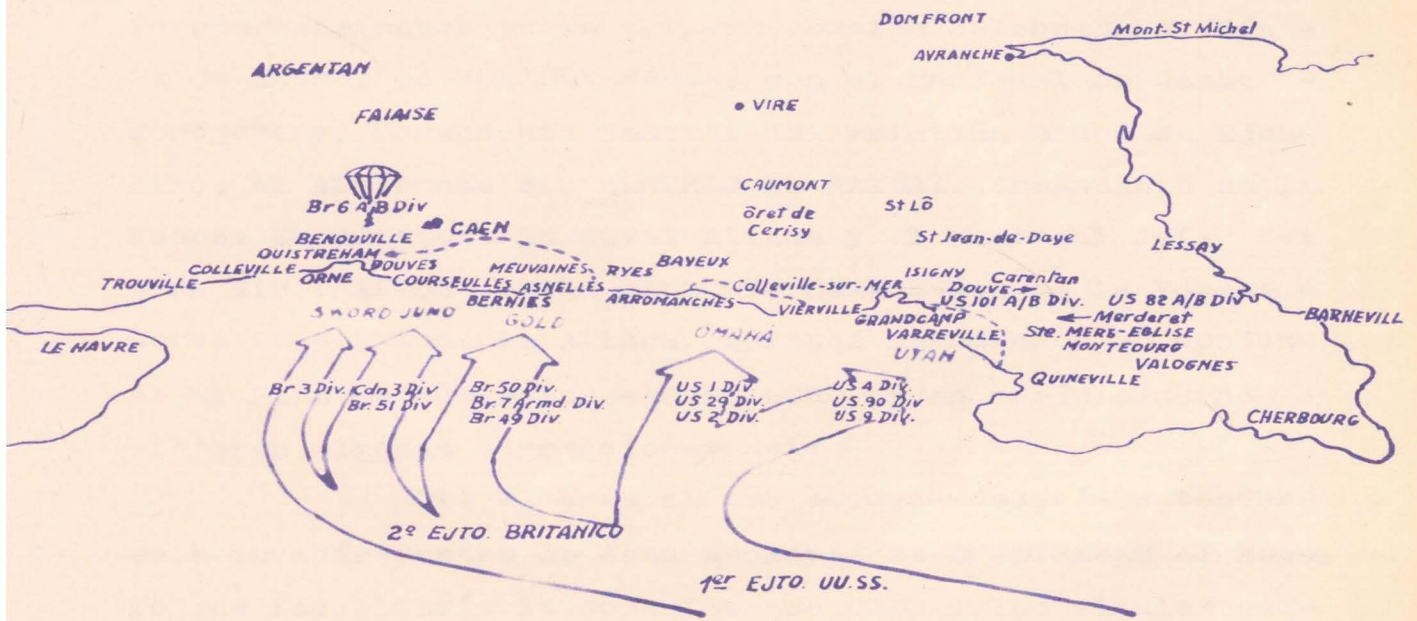 DOMFRONT
Mont-St Michel
AVRANCHE
ARGENTAN
FALAISE
VIRE
CAUMONT
St Lô
ôret de
Cerisy
St Jean-de-Daye
Br 6 A B Div
CAEN
BENOUVILLE
OUISTREHAM
DOUVES
COLLEVILLE
ORNE
TROUVILLE
COURSEULLES
MEUVAINES
ASNELLES
BERNIES
RYES
BAYEUX
ARROMANCHES
Colleville-sur-MER
VIERVILLE
ISIGNY
DOUVE
Carentan
LESSAY
US 101 A/B Div.
US 82 A/B Div
GRANDCAMP
Merderet
BARNEVILL
VARREVILLE
Ste. MERE-EGLISE
MONTEOURG
VALOGNES
QUINEVILLE
CHERBOURG
LE HAVRE
SWORD
JUNO
GOLD
OMAHA
UTAH
Br 3 Div.
Cdn 3 Div
Br. 51 Div
Br. 50 Div
Br. 7 Armd. Div.
Br 49 Div
US 1 Div
US 29 Div.
US 2 Div
US 4 Div.
US. 90 Div
US 9 Div.
2º EJTO. BRITANICO
1er EJTO. UU.SS.